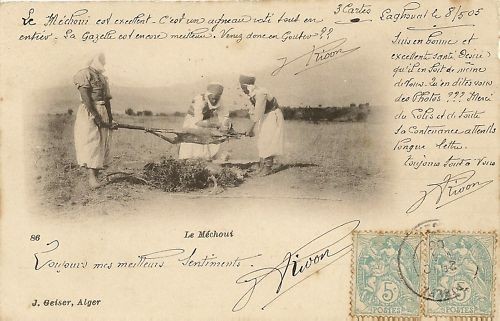 3 Cartes
Laghouat le 8/5 05
Le Méchoui est excellent - C'est un agneau roti tout en
entier - La Gazelle est encore meilleure. Venez donc en Gouter ??
Suis en bonne et
excellente santé. Désire
qu'il en soit de même
de vous. Qu'en dites vous
des Photos ??? Merci
du Colis et de toute
la Contenance. attends
longue lettre.
Toujours tout à Vous
86
Le Méchoui
Toujours mes meilleurs Sentiments.
J. Geiser, Alger
5 5
POSTES POSTES